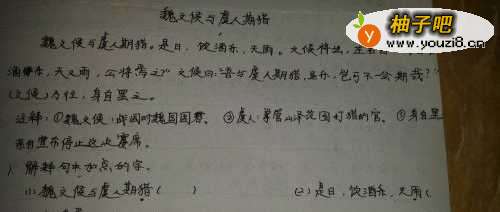 柚子吧
www.youzi8.cn
魏文侯与虞人期猎
魏文侯与虞人期猎。是日,饮酒乐,天雨。文侯将出,左右
酒乐,天又雨,公将焉之?”文侯曰:“吾与虞人期猎,虽乐,岂可不一会期哉?”
(文侯)乃往,身自罢之。
注释:①魏文侯:战国时魏国国君。②虞人:掌管山泽苑囿打猎的官。③身自罢
宣布停止这次宴席。
1 解释句中加点的字。
(1)魏文侯与虞人期猎( ) (2)是日,饮酒乐,天雨(